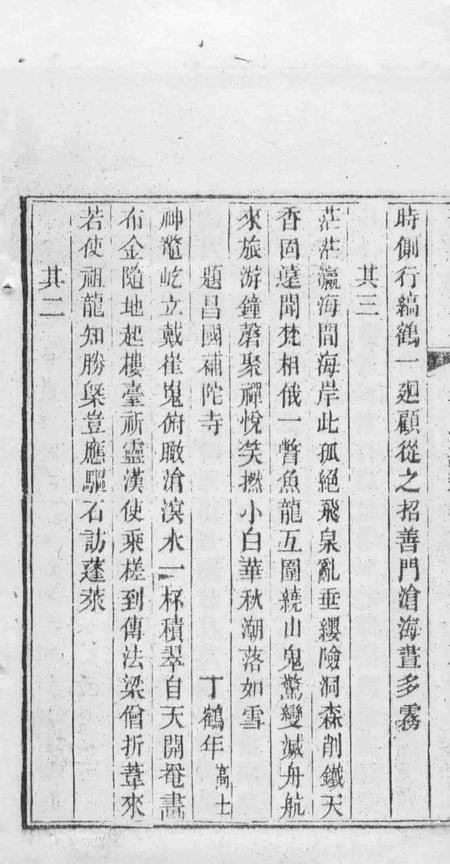 時側行縞鶴一廻顧從之招善門滄海晝多霧
其三
茫茫瀛海間海岸此孤絕飛泉亂垂纓險洞森削鐵天
香固遠聞梵相俄一瞥魚龍互圍繞山鬼驚變滅舟航
來旅游鐘磬聚禪悅笑撚小白華秋潮落如雪
題昌國補陀寺 丁鶴年高士
神鼇屹立戴崔嵬俯瞰滄溟水一杯積翠自天開罨畫
布金隨地起樓臺祈靈漢使乘槎到傳法梁僧折葦來
若使祖龍知勝槩豈應驅石訪蓬萊
其二